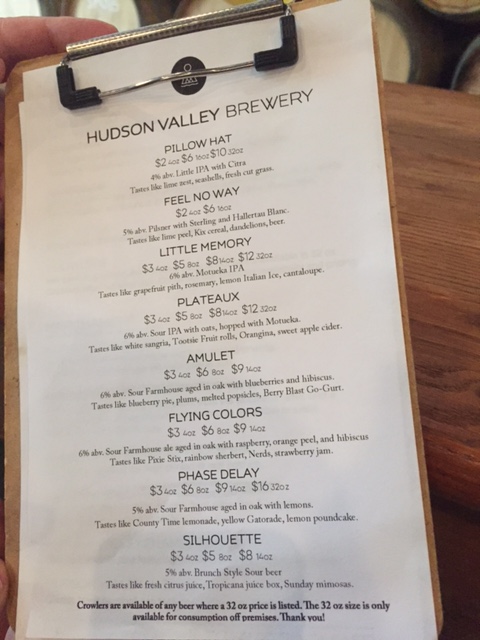 HUDSON VALLEY BREWERY
PILLOW HAT
$2 4oz $6 16oz $10 32oz
4% abv. Little IPA with Citra
Tastes like lime zest, seashells, fresh cut grass.
FEEL NO WAY
$2 4oz $6 16oz
5% abv. Pilsner with Sterling and Hallertau Blanc.
Tastes like lime peel, Kix cereal, dandelions, beer.
LITTLE MEMORY
$3 4oz $5 8oz $8 14oz $12 32oz
6% abv. Motueka IPA
Tastes like grapefruit pith, rosemary, lemon Italian Ice, cantaloupe.
PLATEAUX
$3 4oz $5 8oz $8 14oz $12 32oz
6% abv. Sour IPA with oats, hopped with Motueka.
Tastes like white sangria, Tootsie Fruit rolls, Orangina, sweet apple cider.
AMULET
$3 4oz $6 8oz $9 14oz
6% abv. Sour Farmhouse aged in oak with blueberries and hibiscus.
Tastes like blueberry pie, plums, melted popsicles, Berry Blast Go-Gurt.
FLYING COLORS
$3 4oz $6 8oz $9 14oz
6% abv. Sour Farmhouse ale aged in oak with raspberry, orange peel, and hibiscus
Tastes like Pixie Stix, rainbow sherbert, Nerds, strawberry jam.
PHASE DELAY
$3 4oz $6 8oz $9 14oz $16 32oz
5% abv. Sour Farmhouse aged in oak with lemons.
Tastes like County Time lemonade, yellow Gatorade, lemon poundcake.
SILHOUETTE
$3 4oz $5 8oz $8 14oz
5% abv. Brunch Style Sour beer
Tastes like fresh citrus juice, Tropicana juice box, Sunday mimosas.
Crowlers are available of any beer where a 32 oz price is listed. The 32 oz size is only
available for consumption off premises. Thank you!